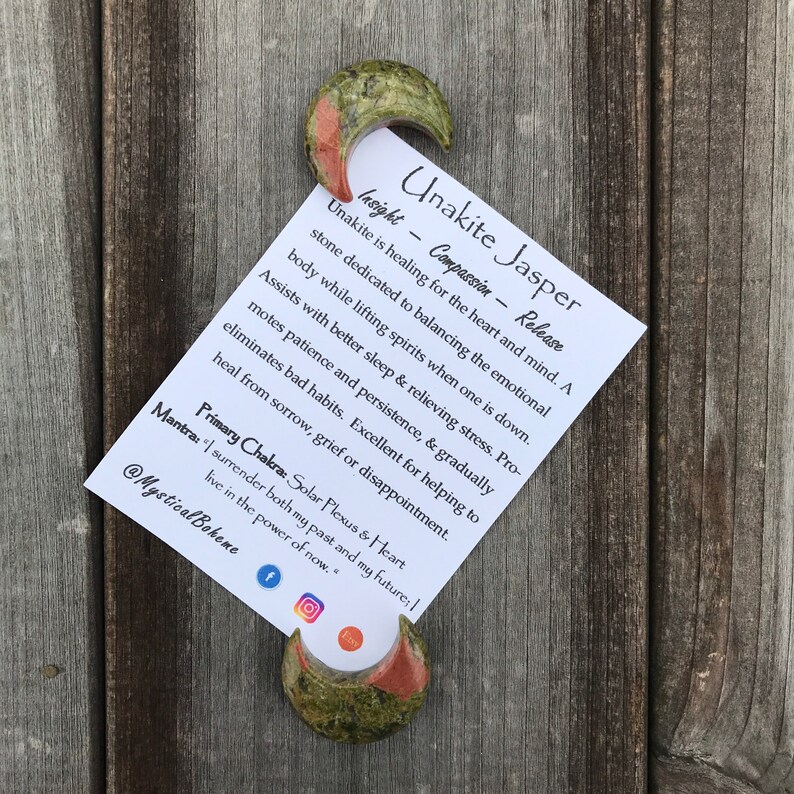 Unakite Jasper
Insight – Compassion – Release
Unakite is healing for the heart and mind. A
stone dedicated to balancing the emotional
body while lifting spirits when one is down.
Assists with better sleep & relieving stress. Pro-
motes patience and persistence, & gradually
eliminates bad habits. Excellent for helping to
heal from sorrow, grief or disappointment.
Primary Chakra: Solar Plexus & Heart
Mantra: "I surrender both my past and my future; I
live in the power of now. "
@MysticalBoheme
f
Etsy